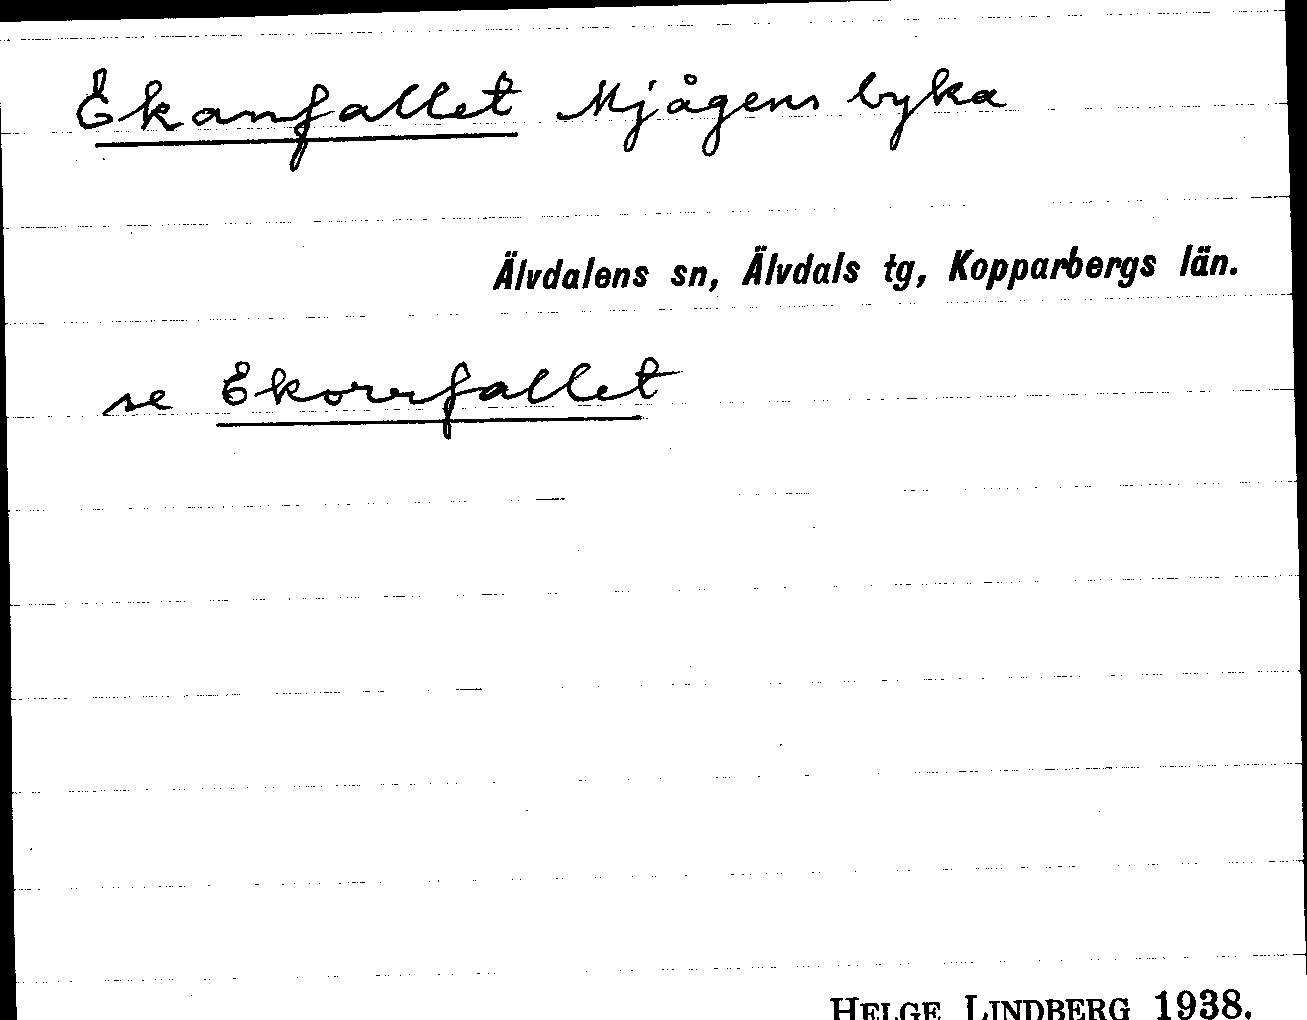 Ekanfallet Mjågens byka
Älvdalens sn, Älvdals tg, Kopparbergs län.
se Ekorrfallet
HELGE LINDBERG 1938.